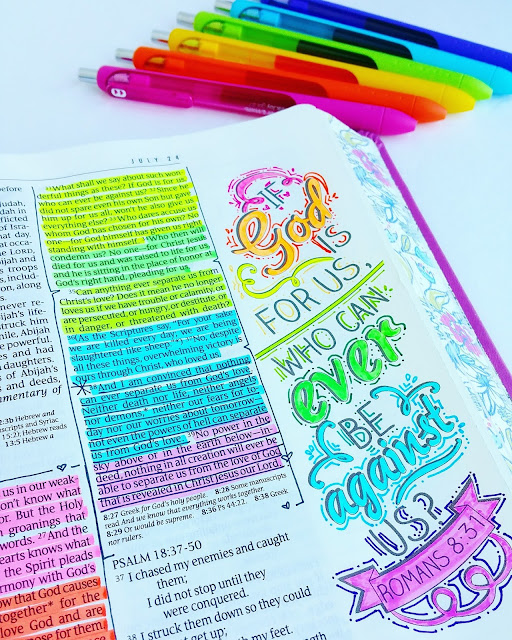 JULY 24
before
nflicted
of Isra-
that day.
at occa-
he LORD,
bijah and
s troops
includ-
along
ver re-
h's life-
struck him
Abijah
powerful.
ives and
daughters.
of Abijah's
and deeds,
mentary of
2:3b Hebrew and
scripts and Syriac
15:2); Hebrew reads
13:5 Hebrew a
us in our weak-
on't know what
or. But the Holy
groanings that
words. 27 And the
earts knows what
the Spirit pleads
rmony with God's
ow that God causes
together* for the
love God and are
pose for them
31 What shall we say about such won-
derful things as these? If God is for us,
who can ever be against us? 32 Since he
did not spare even his own Son but gave
him up for us all, won't he also give us
everything else? 33 Who dares accuse us
whom God has chosen for his own? No
one—for God himself has given us right
standing with himself. 34 Who then will
condemn us? No one—for Christ Jesus
died for us and was raised to life for us,
and he is sitting in the place of honor at
God's right hand, pleading for us.
35 Can anything ever separate us from
Christ's love? Does it mean he no longer
loves us if we have trouble or calamity, or
are persecuted, or hungry, or destitute, or
in danger, or threatened with death?
36 (As the Scriptures say, "For your sake
we are killed every day; we are being
slaughtered like sheep."*) 37 No, despite
all these things, overwhelming victory is
ours through Christ, who loved us.
38 And I am convinced that nothing
can ever separate us from God's love.
Neither death nor life, neither angels
nor demons,* neither our fears for to-
day nor our worries about tomorrow—
not even the powers of hell can separate
us from God's love. 39 No power in the
sky above or in the earth below—in-
deed, nothing in all creation will ever be
able to separate us from the love of God
that is revealed in Christ Jesus our Lord.
8:27 Greek for God's holy people. 8:28 Some manuscripts
read And we know that everything works together.
8:29 Or would be supreme. 8:36 Ps 44:22. 8:38 Greek
nor rulers.
PSALM 18:37-50
37 I chased my enemies and caught
them;
I did not stop until they
were conquered.
38 I struck them down so they could
not get up;
my feet.
IF
God
IS
FOR US,
WHO CAN
ever
BE
against
US?
ROMANS 8:31